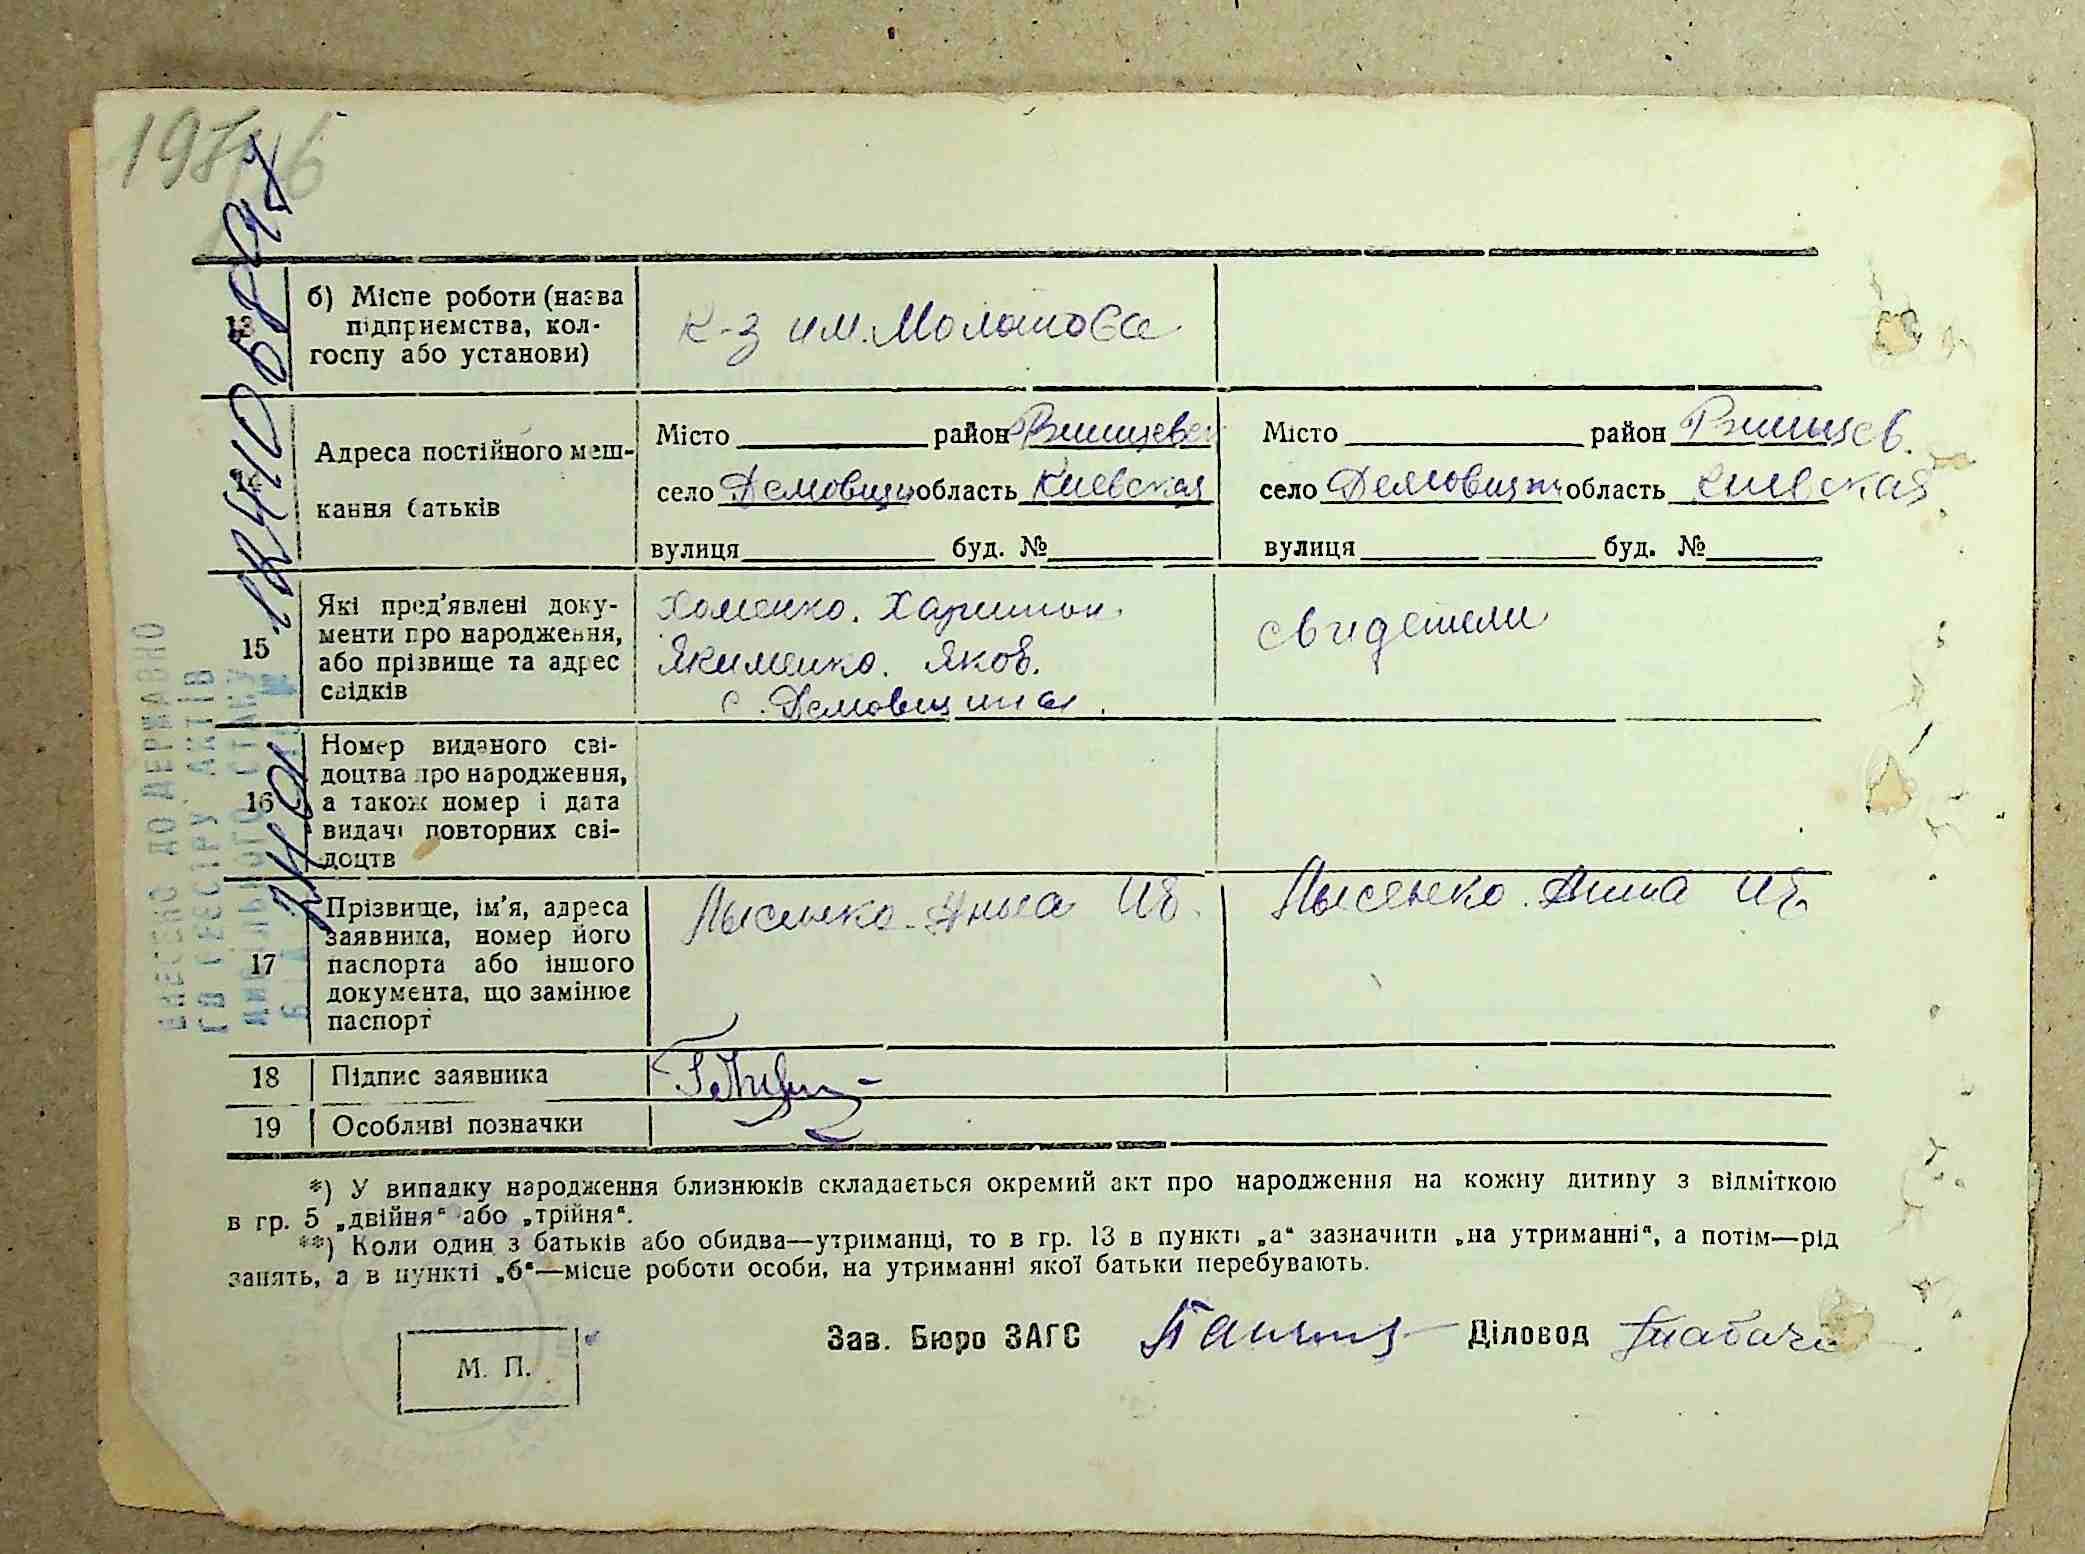 13 б) Місце роботи (назва
підприємства, кол-
госпу або установи)
к-з им. Молотова
14 Адреса постійного меш-
кання батьків
Місто район
село область Киевская
вулиця буд. №
Місто район
село область Киевская
вулиця буд. №
15 Які пред'явлені доку-
менти про народження,
або прізвище та адрес
свідків
Хоменко. Харитон.
Якименко. Яков.
с. Демовщина.
свидетели
16 Номер виданого сві-
доцтва про народження,
а також номер і дата
видачі повторних сві-
доцтв
17 Прізвище, ім'я, адреса
заявника, номер його
паспорта або іншого
документа, що замінює
паспорт
Лысенко. Анна Ив.
Лысенко. Анна Ив.
18 Підпис заявника
19 Особливі позначки
ВНЕСЕНО ДО ДЕРЖАВНО
ГО РЕЄСТРУ АКТІВ
*) У випадку народження близнюків складається окремий акт про народження на кожну дитину з відміткою
в гр. 5 „двійня“ або „трійня“.
**) Коли один з батьків або обидва—утриманці, то в гр. 13 в пункті „а“ зазначити „на утриманні“, а потім—рід
занять, а в пункті „б“—місце роботи особи, на утриманні якої батьки перебувають.
Зав. Бюро ЗАГС Діловод
М. П.